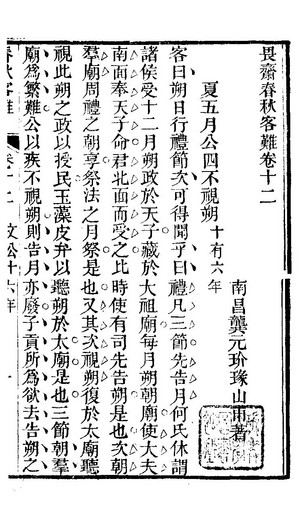 畏齋春秋客難卷十二
南昌龔元玠瑑山甫著
夏五月公四不視朔十有六年
客曰朔日行禮節次可得聞乎曰禮凡三節先告月何氏休謂
諸侯受十二月朔政於天子藏於大祖廟每月朔朝廟使大夫
南面奉天子命君北面而受之比時使有司先告朔是也次朝
羣廟周禮之朝享祭法之月祭是也又其次視朔復於太廟聽
視此朔之政以授民玉藻皮弁以聽朔於太廟是也三節朝羣
廟為繁難公以疾不視朔則告月亦廢子貢所為欲去告朔之
春秋客難
卷十二
文公十六年
一